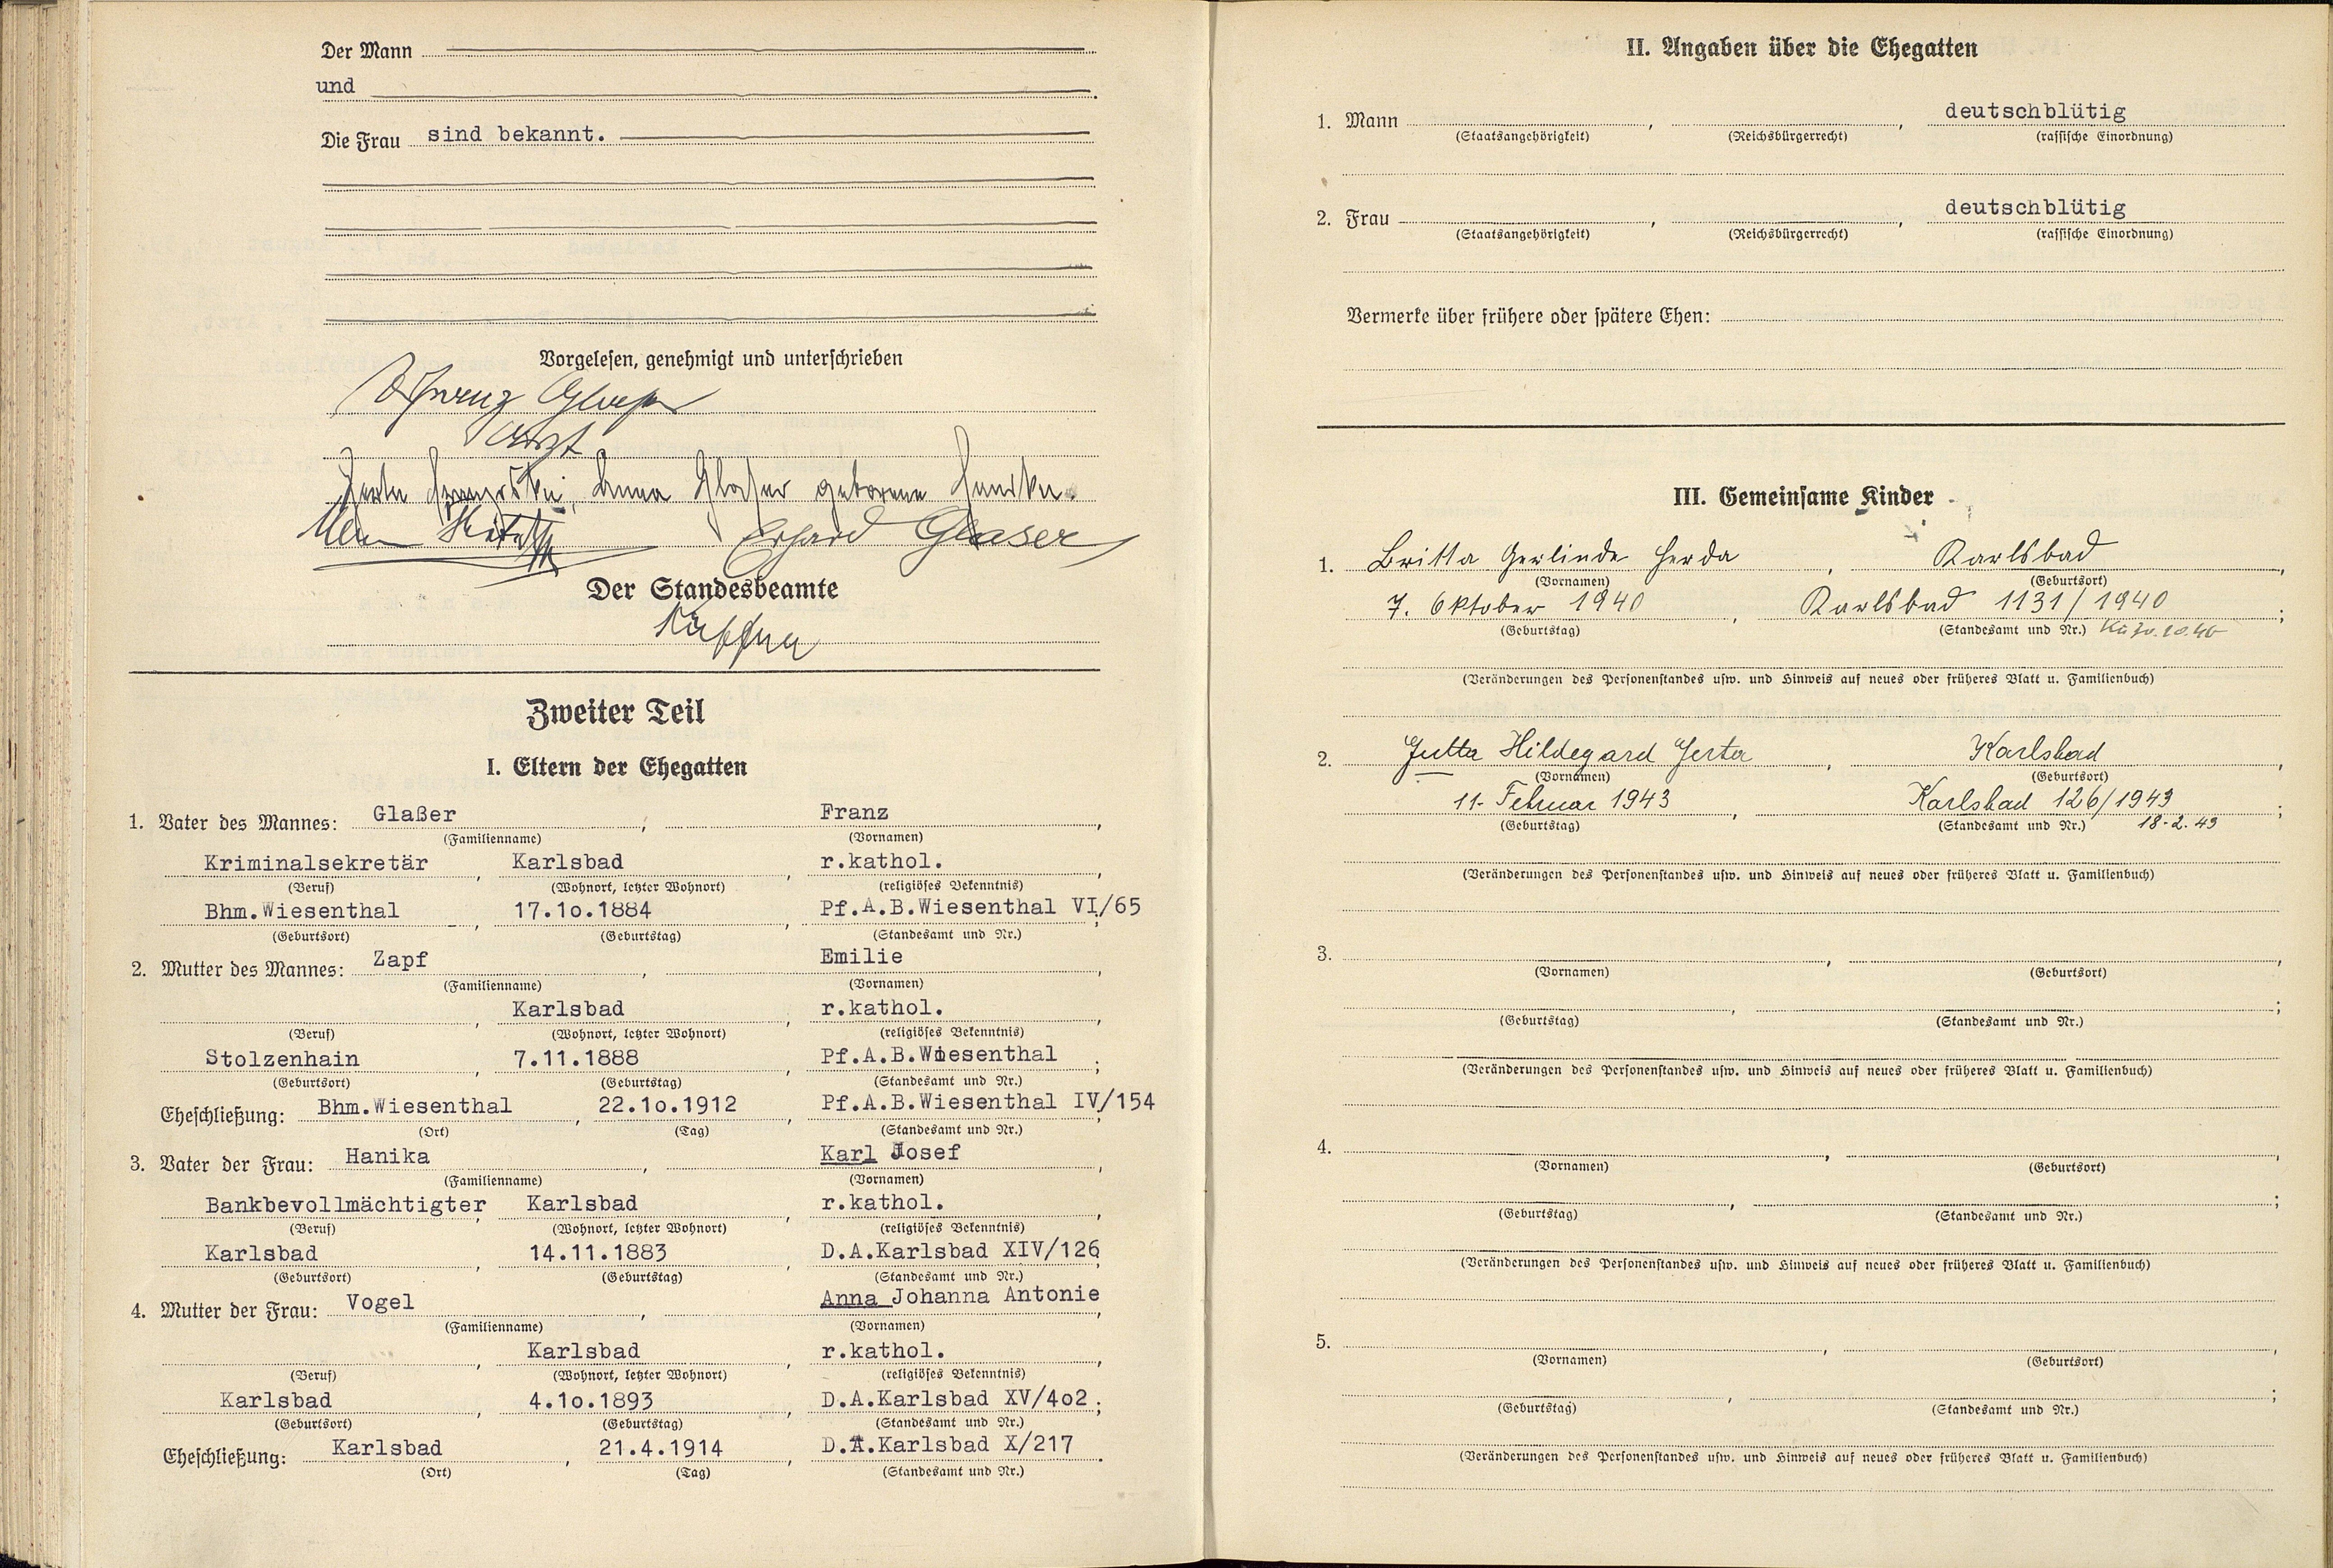 Der Mann
und
Die Frau sind bekannt.
Vorgelesen, genehmigt und unterschrieben
Franz Glaßer
Arzt
Herta Franziska Anna Glaßer geborene Hanika.
Erhard Glaser
Der Standesbeamte
Zweiter Teil
I. Eltern der Ehegatten
1. Vater des Mannes: Glaßer , Franz ,
(Familienname) (Vornamen)
Kriminalsekretär , Karlsbad , r.kathol. ,
(Beruf) (Wohnort, letzter Wohnort) (religiöses Bekenntnis)
Bhm.Wiesenthal , 17.1o.1884 , Pf.A.B.Wiesenthal VI/65 ;
(Geburtsort) (Geburtstag) (Standesamt und Nr.)
2. Mutter des Mannes: Zapf , Emilie ,
(Familienname) (Vornamen)
, Karlsbad , r.kathol. ,
(Beruf) (Wohnort, letzter Wohnort) (religiöses Bekenntnis)
Stolzenhain , 7.11.1888 , Pf.A.B.Wiesenthal ;
(Geburtsort) (Geburtstag) (Standesamt und Nr.)
Eheschließung: Bhm.Wiesenthal , 22.1o.1912 , Pf.A.B.Wiesenthal IV/154
(Ort) (Tag) (Standesamt und Nr.)
3. Vater der Frau: Hanika , Karl Josef ,
(Familienname) (Vornamen)
Bankbevollmächtigter , Karlsbad , r.kathol. ,
(Beruf) (Wohnort, letzter Wohnort) (religiöses Bekenntnis)
Karlsbad , 14.11.1883 , D.A.Karlsbad XIV/126 ;
(Geburtsort) (Geburtstag) (Standesamt und Nr.)
4. Mutter der Frau: Vogel , Anna Johanna Antonie ,
(Familienname) (Vornamen)
, Karlsbad , r.kathol. ,
(Beruf) (Wohnort, letzter Wohnort) (religiöses Bekenntnis)
Karlsbad , 4.1o.1893 , D.A.Karlsbad XV/4o2 ;
(Geburtsort) (Geburtstag) (Standesamt und Nr.)
Eheschließung: Karlsbad , 21.4.1914 , D.A.Karlsbad X/217 .
(Ort) (Tag) (Standesamt und Nr.)
II. Angaben über die Ehegatten
1. Mann , , deutschblütig
(Staatsangehörigkeit) (Reichsbürgerrecht) (rassische Einordnung)
2. Frau , , deutschblütig
(Staatsangehörigkeit) (Reichsbürgerrecht) (rassische Einordnung)
Vermerke über frühere oder spätere Ehen:
III. Gemeinsame Kinder
1. Britta Gerlinde Herda , Karlsbad ,
(Vornamen) (Geburtsort)
7. Oktober 1940 , Karlsbad 1131/1940 ;
(Geburtstag) (Standesamt und Nr.)
(Veränderungen des Personenstandes usw. und Hinweis auf neues oder früheres Blatt u. Familienbuch)
2. Jutta Hildegard Gerta , Karlsbad ,
(Vornamen) (Geburtsort)
11. Februar 1943 , Karlsbad 126/1943 ;
(Geburtstag) (Standesamt und Nr.) 18.2.43
(Veränderungen des Personenstandes usw. und Hinweis auf neues oder früheres Blatt u. Familienbuch)
3. , ,
(Vornamen) (Geburtsort)
, ;
(Geburtstag) (Standesamt und Nr.)
(Veränderungen des Personenstandes usw. und Hinweis auf neues oder früheres Blatt u. Familienbuch)
4. , ,
(Vornamen) (Geburtsort)
, ;
(Geburtstag) (Standesamt und Nr.)
(Veränderungen des Personenstandes usw. und Hinweis auf neues oder früheres Blatt u. Familienbuch)
5. , ,
(Vornamen) (Geburtsort)
, ;
(Geburtstag) (Standesamt und Nr.)
(Veränderungen des Personenstandes usw. und Hinweis auf neues oder früheres Blatt u. Familienbuch)